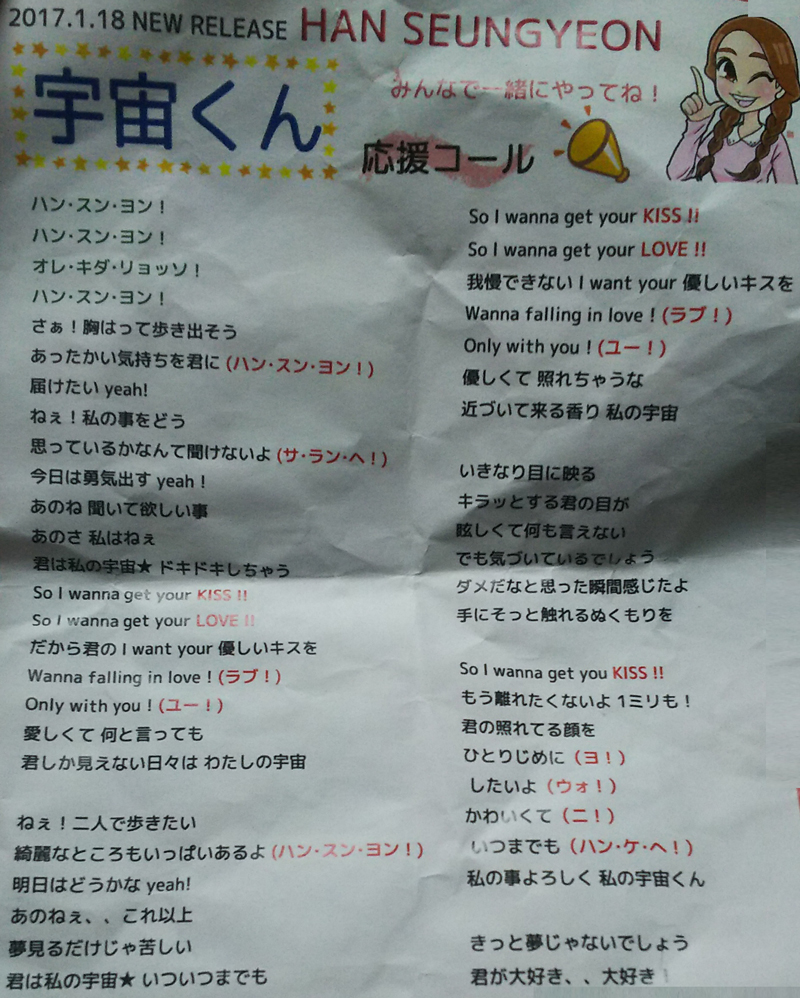 2017.1.18 NEW RELEASE HAN SEUNGYEON
宇宙くん
みんなで一緒にやってね！
応援コール
ハン・スン・ヨン！
ハン・スン・ヨン！
オレ・キダ・リョッソ！
ハン・スン・ヨン！
さぁ！胸はって歩き出そう
あったかい気持ちを君に (ハン・スン・ヨン！)
届けたい yeah!
ねぇ！私の事をどう
思っているかなんて聞けないよ (サ・ラン・ヘ！)
今日は勇気出す yeah！
あのね 聞いて欲しい事
あのさ 私はねぇ
君は私の宇宙★ ドキドキしちゃう
So I wanna get your KISS !!
So I wanna get your LOVE !!
だから君の I want your 優しいキスを
Wanna falling in love！(ラブ！)
Only with you！(ユー！)
愛しくて 何と言っても
君しか見えない日々は わたしの宇宙
ねぇ！二人で歩きたい
綺麗なところもいっぱいあるよ (ハン・スン・ヨン！)
明日はどうかな yeah!
あのねぇ、、これ以上
夢見るだけじゃ苦しい
君は私の宇宙★ いついつまでも
So I wanna get your KISS !!
So I wanna get your LOVE !!
我慢できない I want your 優しいキスを
Wanna falling in love！(ラブ！)
Only with you！(ユー！)
優しくて 照れちゃうな
近づいて来る香り 私の宇宙
いきなり目に映る
キラッとする君の目が
眩しくて何も言えない
でも気づいているでしょう
ダメだなと思った瞬間感じたよ
手にそっと触れるぬくもりを
So I wanna get you KISS !!
もう離れたくないよ 1ミリも！
君の照れてる顔を
ひとりじめに（ヨ！）
したいよ（ウォ！）
かわいくて（ニ！）
いつまでも（ハン・ケ・ヘ！）
私の事よろしく 私の宇宙くん
きっと夢じゃないでしょう
君が大好き、、大好き